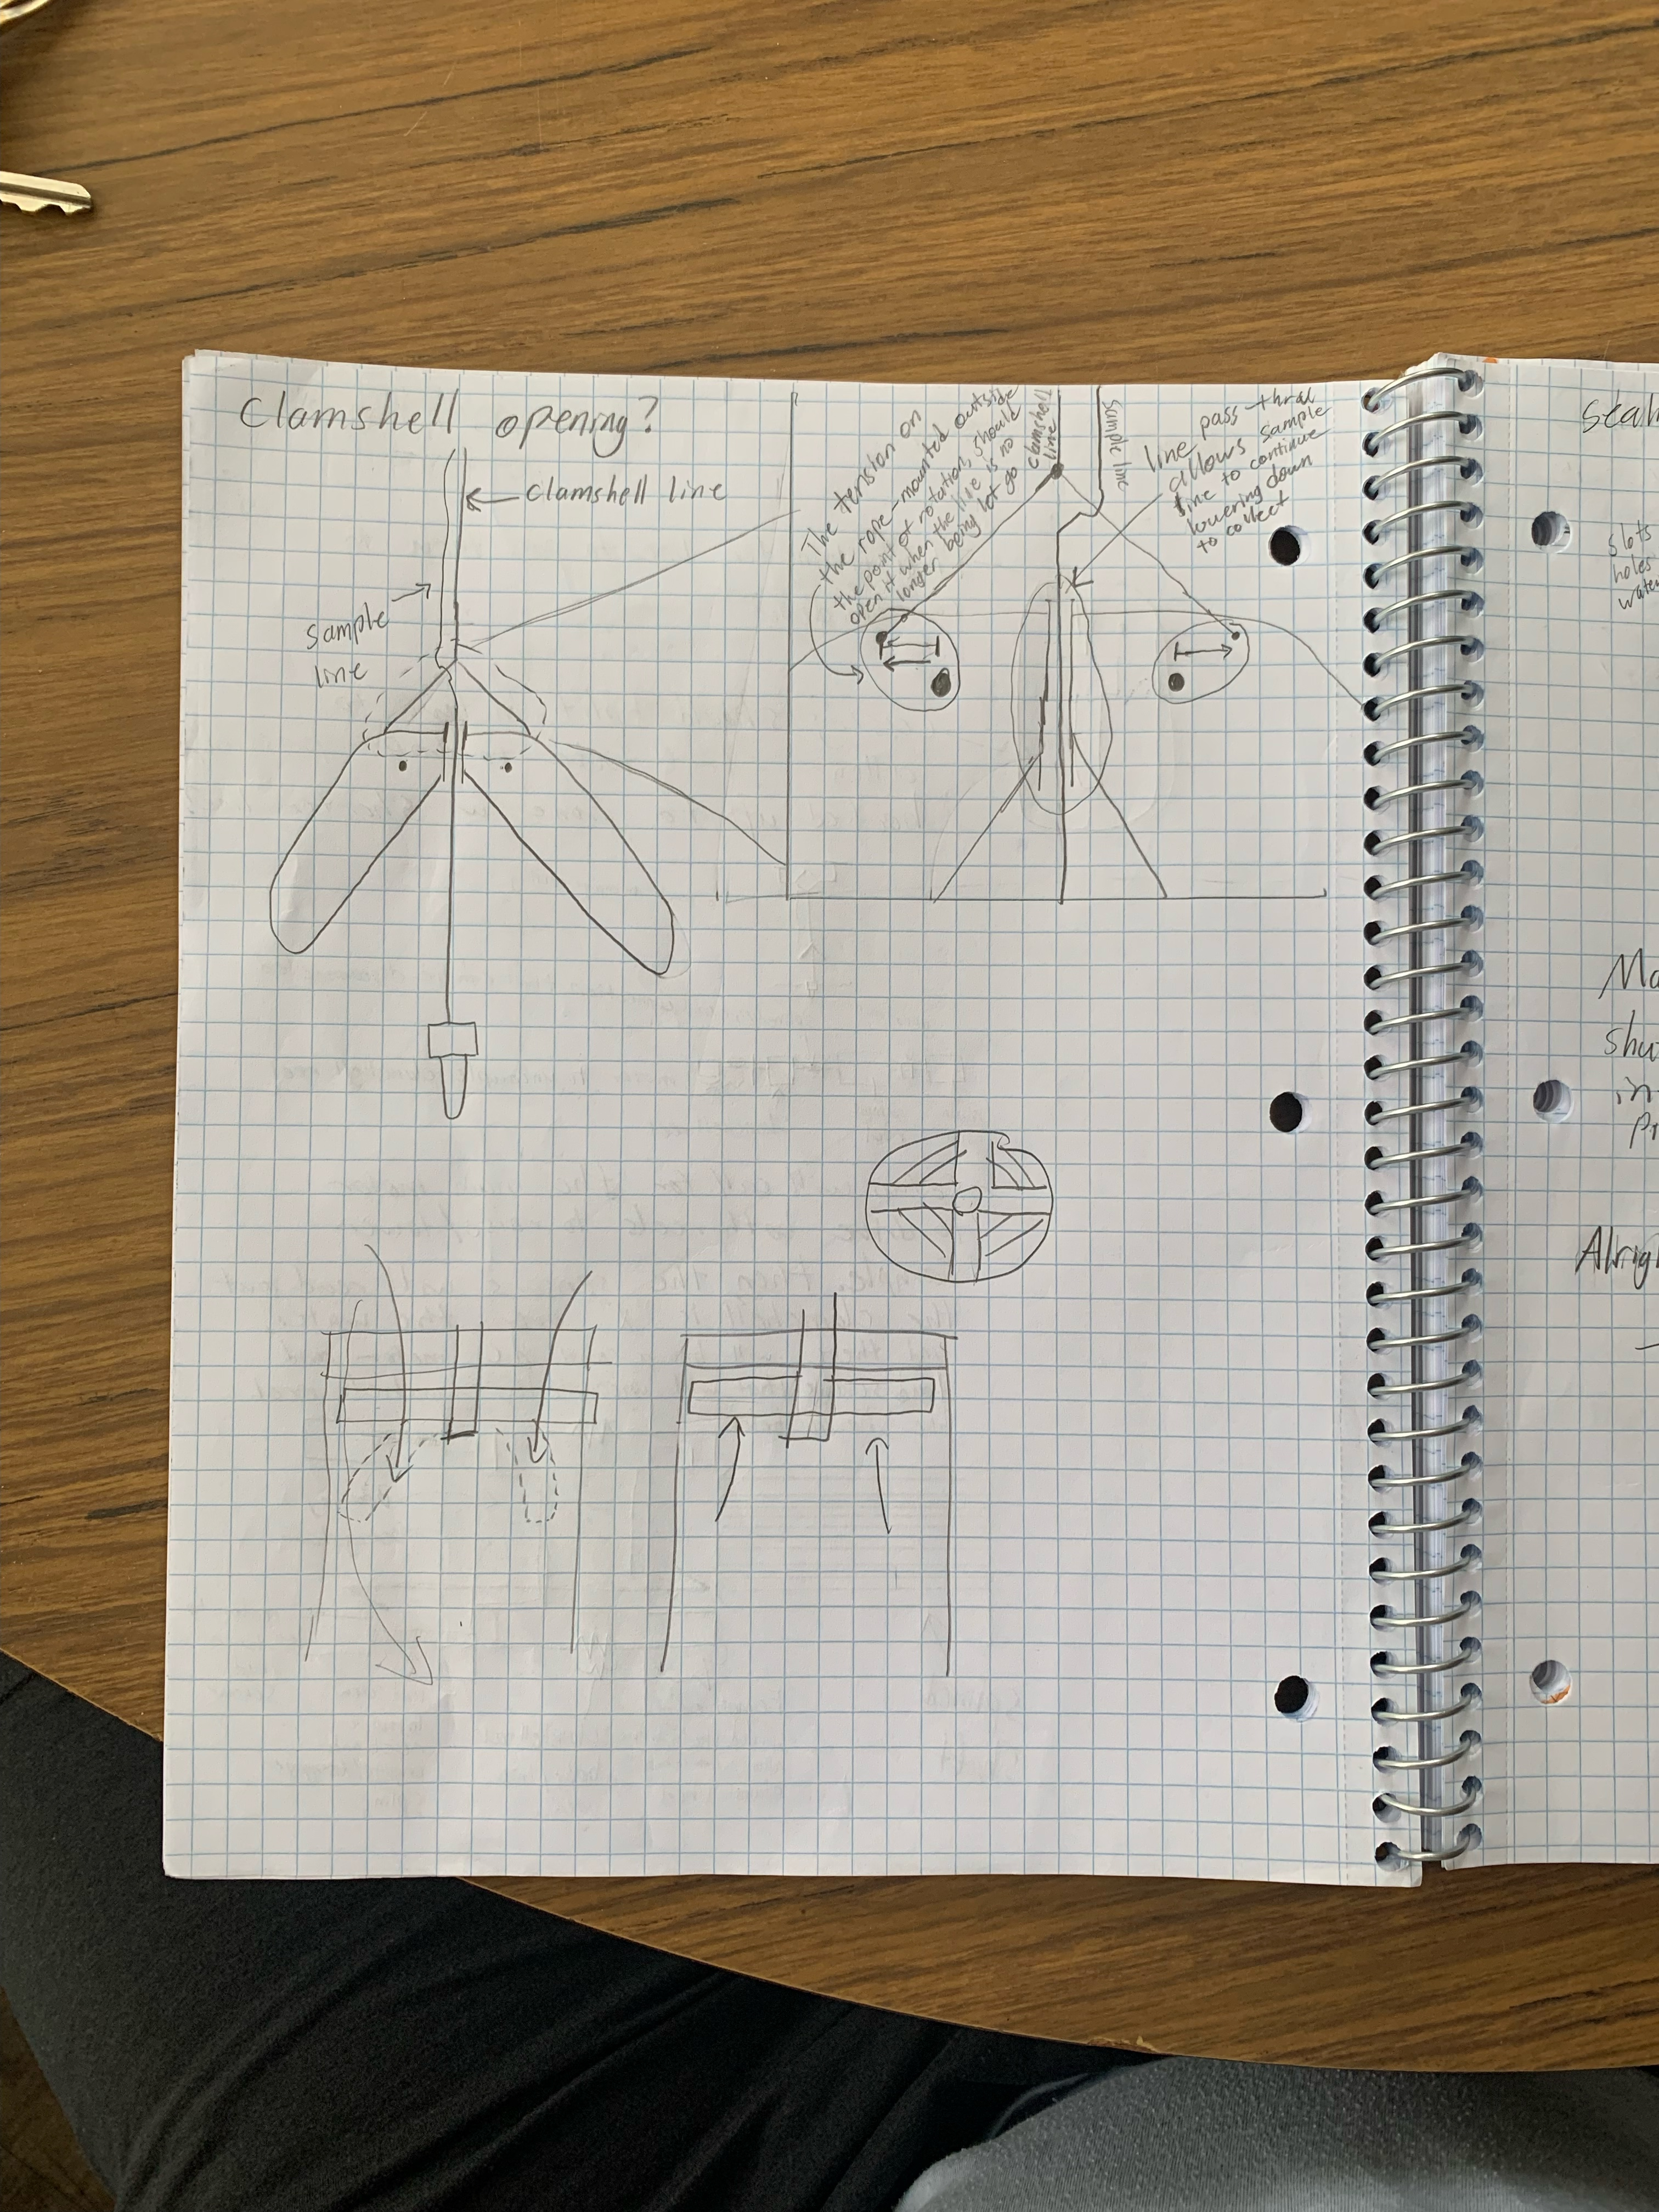 Clamshell opening?
Clamshell line
Sample
line
The tension on
the rope-mounted outside
the point of rotation, should
open it when the line is no
longer being let go
Clamshell
line
Sample line
line pass-thru
allows sample
line to continue
lowering down
to collect
Seal
slots
holes
water
Ma
shu
in
Pr
Alrig